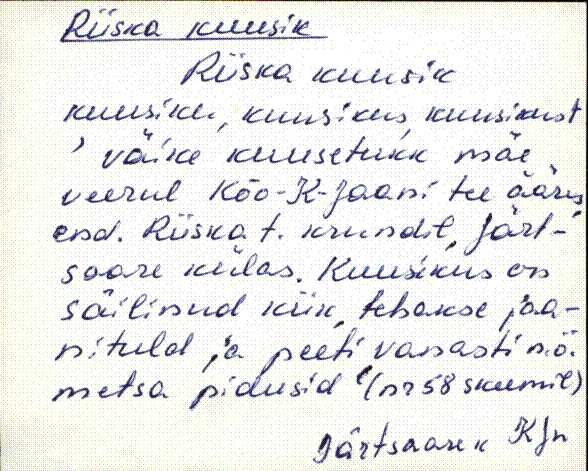 Riiska kuusik
Riiska kuusik
kuusiku, kuusikus, kuusikust
' väike kuusetukk mäe
veerul Kõo-K-Jaani tee ääres,
end. Riiska t. krundil, Järt-
saare külas. Kuusikus on
säilinud kiik, tehakse jaa-
nituld ja peeti vanasti n.ö.
metsa pidusid' (nr 58 skeemil)
Järtsaare k KJn